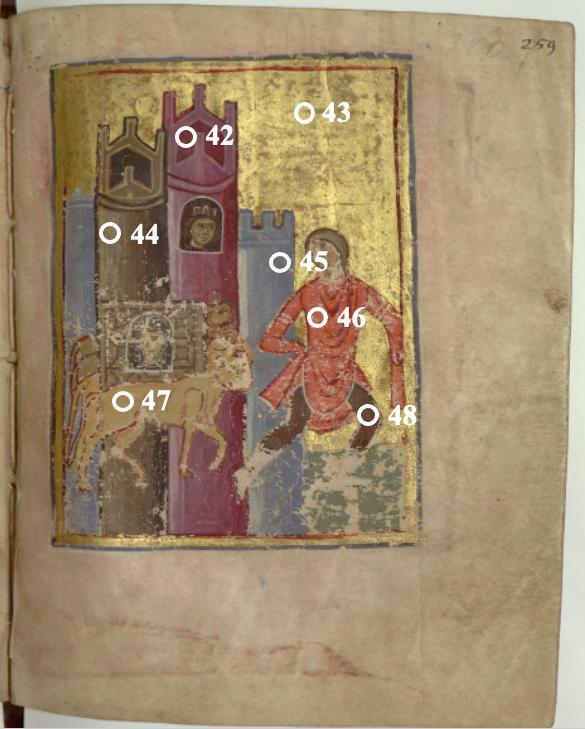 259
42
43
44
45
46
47
48